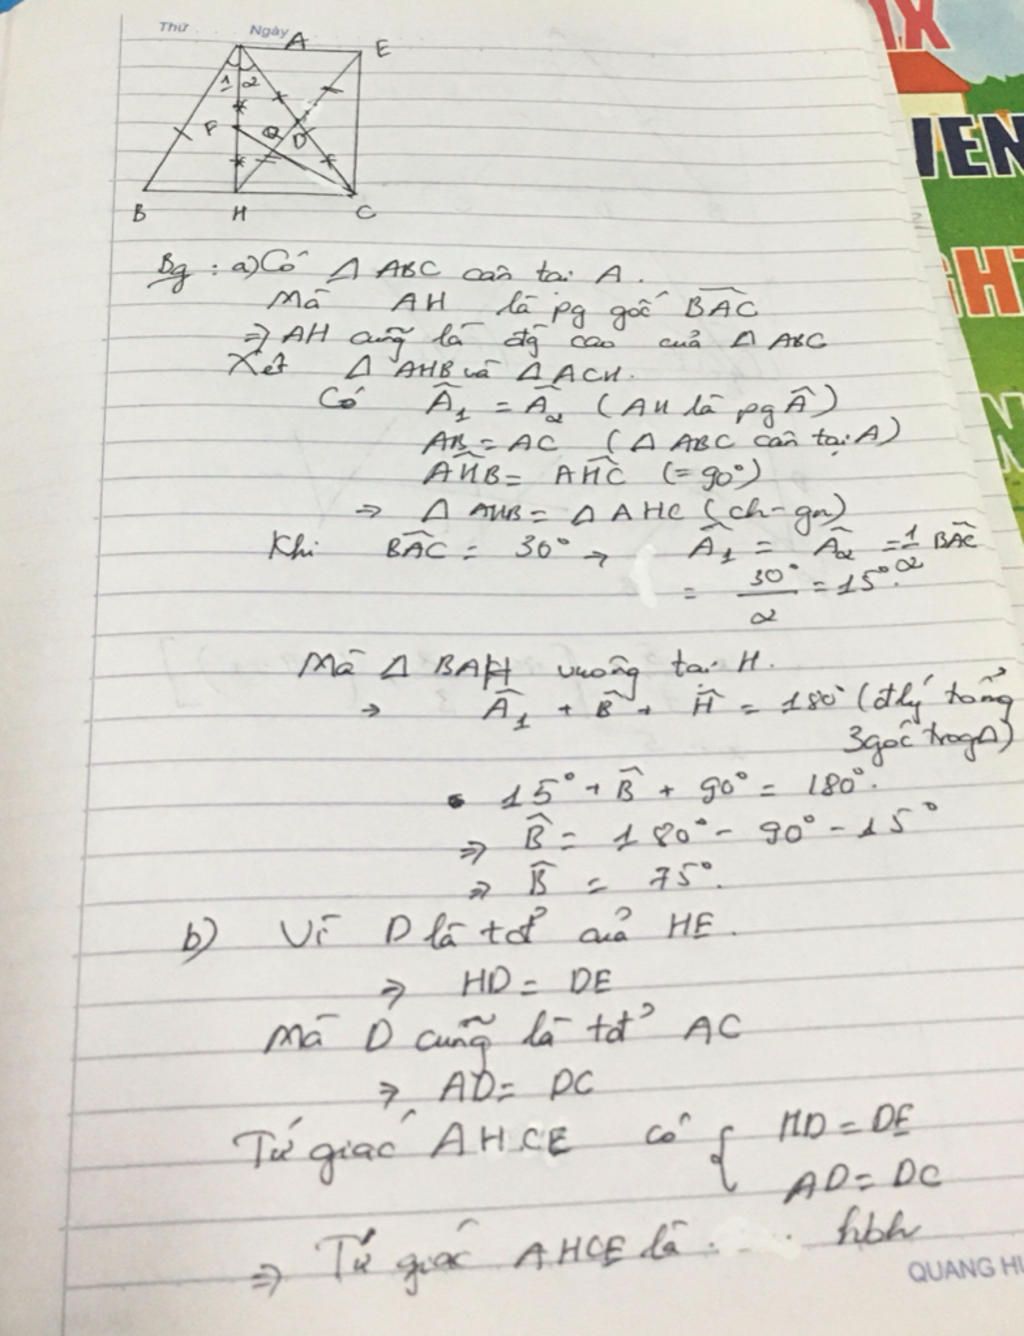 Thứ
Ngày
A
E
1 2
F
Q
D
B
H
C
Bg : a) Có Δ ABC cân tại A.
Mà AH là pg góc BAC
⇒ AH cũng là đg cao của Δ ABC
Xét Δ AHB và Δ ACH.
Có Â₁ = Â₂ (AH là pg Â)
AB = AC (Δ ABC cân tại A)
AHB = AHC (= 90°)
⇒ Δ AHB = Δ AHC (ch - gn)
Khi BAC = 30° → Â₁ = Â₂ = 1/2 BAC
= 30°/2 = 15°.
Mà Δ BAH vuông tại H.
⇒ Â₁ + B̂ + Ĥ = 180° (đlý tổng
3 góc trog Δ)
15° + B̂ + 90° = 180°.
⇒ B̂ = 180° - 90° - 15°
⇒ B̂ = 75°.
b) Vì D là tđ² của HE.
⇒ HD = DE
Mà D cũng là tđ² AC
⇒ AD = DC
Tứ giác AHCE có { HD = DE
AD = DC
⇒ Tứ giác AHCE là hbh
QUANG HƯ
AX
IEN
GHT
N